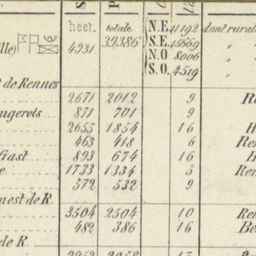 hect. totale N.E. 41192 dont rural
lle) 4931 39386 S.E. 15669 "
N.O 8006 "
S.O. 4519 "
de Rennes
2671 2012 9 Re
ugerets 871 701 9
2655 1854 16 H
463 418 6 Ren
Gast 893 674 16 H
e 1733 1334 5 Ren
572 532 9
nest de R.
3504 2504 10 Ren
482 386 16 Be
de R.